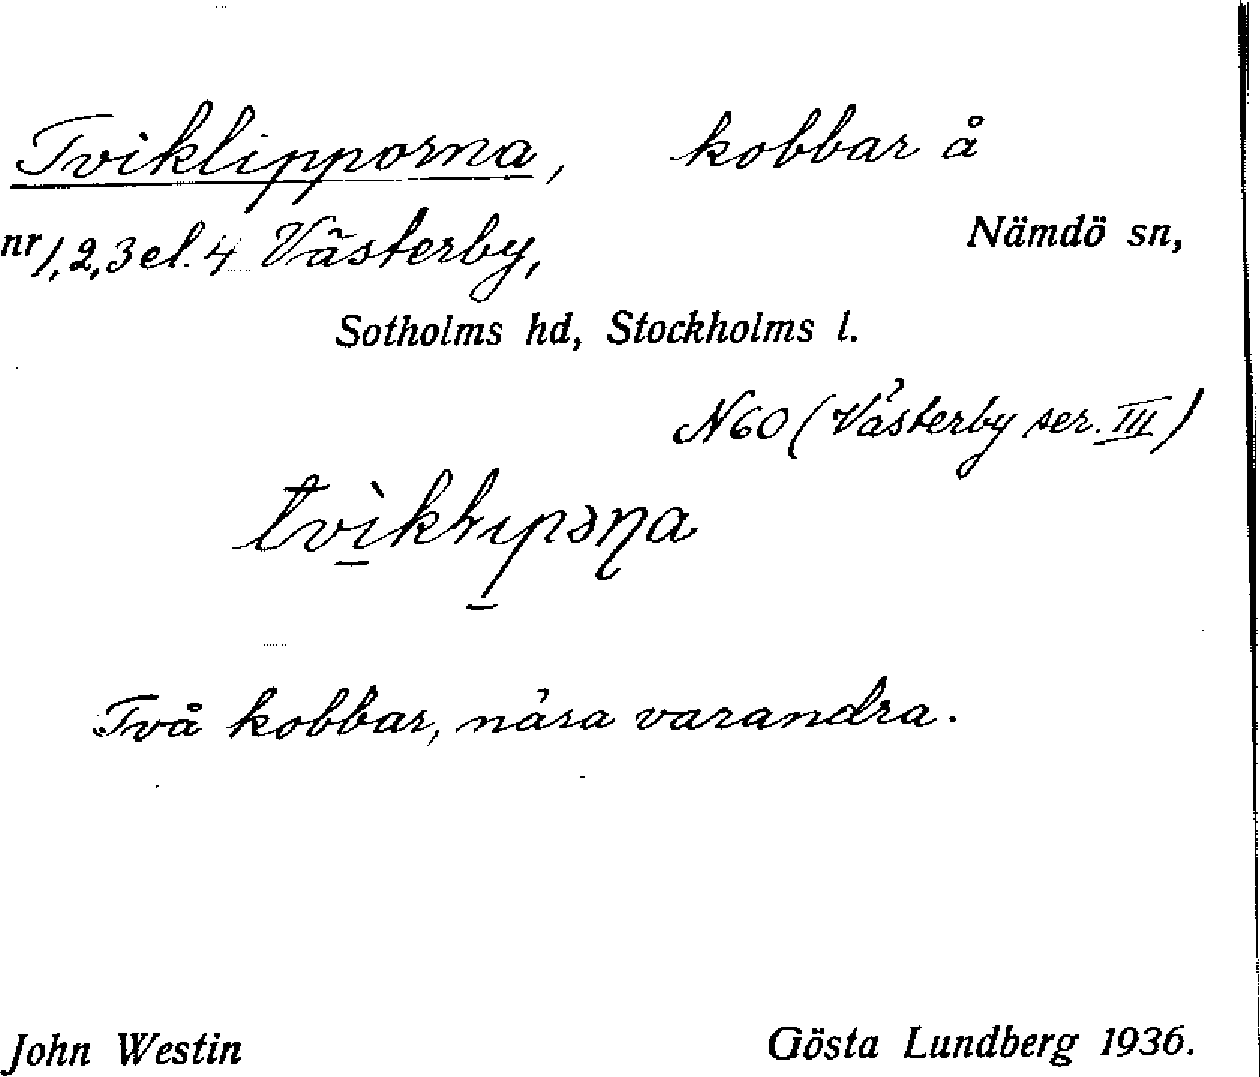 Tviklipporna, kobbar å
nr 1, 2, 3 el. 4 Västerby, Nämdö sn,
Sotholms hd, Stockholms l.
N60 (Västerby ser. III)
Två kobbar, nära varandra.
John Westin Gösta Lundberg 1936.